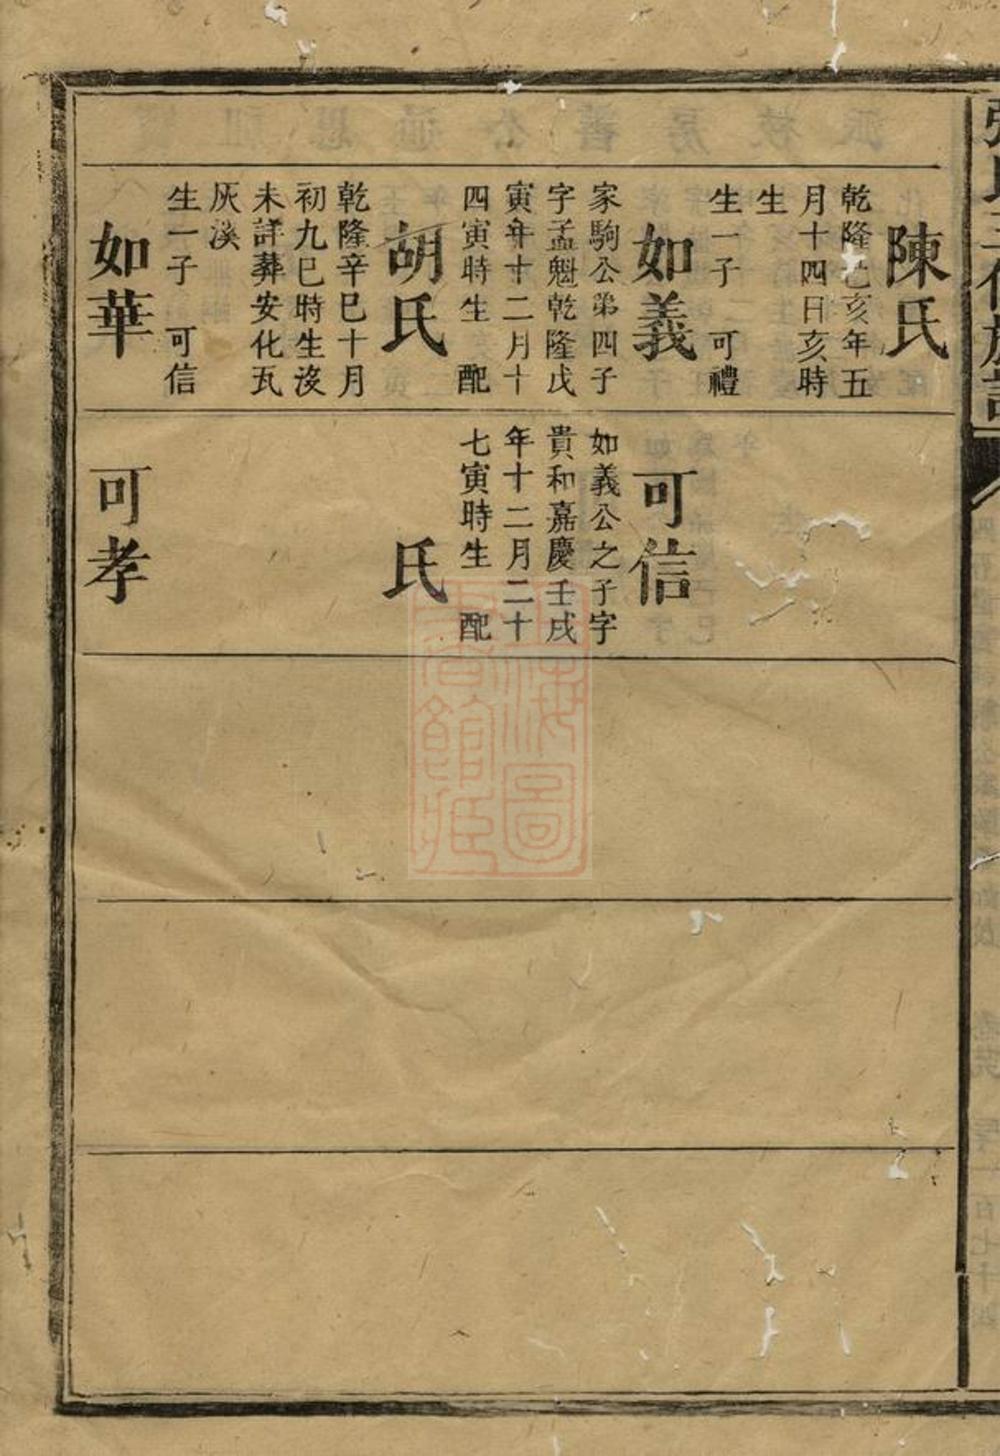 陳氏
乾隆己亥年五
月十四日亥時
生
生一子 可禮
如義
家駒公第四子
字孟魁乾隆戊
寅年十二月十
四寅時生 配
胡氏
乾隆辛巳十月
初九巳時生沒
未詳葬安化瓦
灰溪
生一子 可信
如華
可信
如義公之子字
貴和嘉慶壬戌
年十二月二十
七寅時生 配
氏
可孝